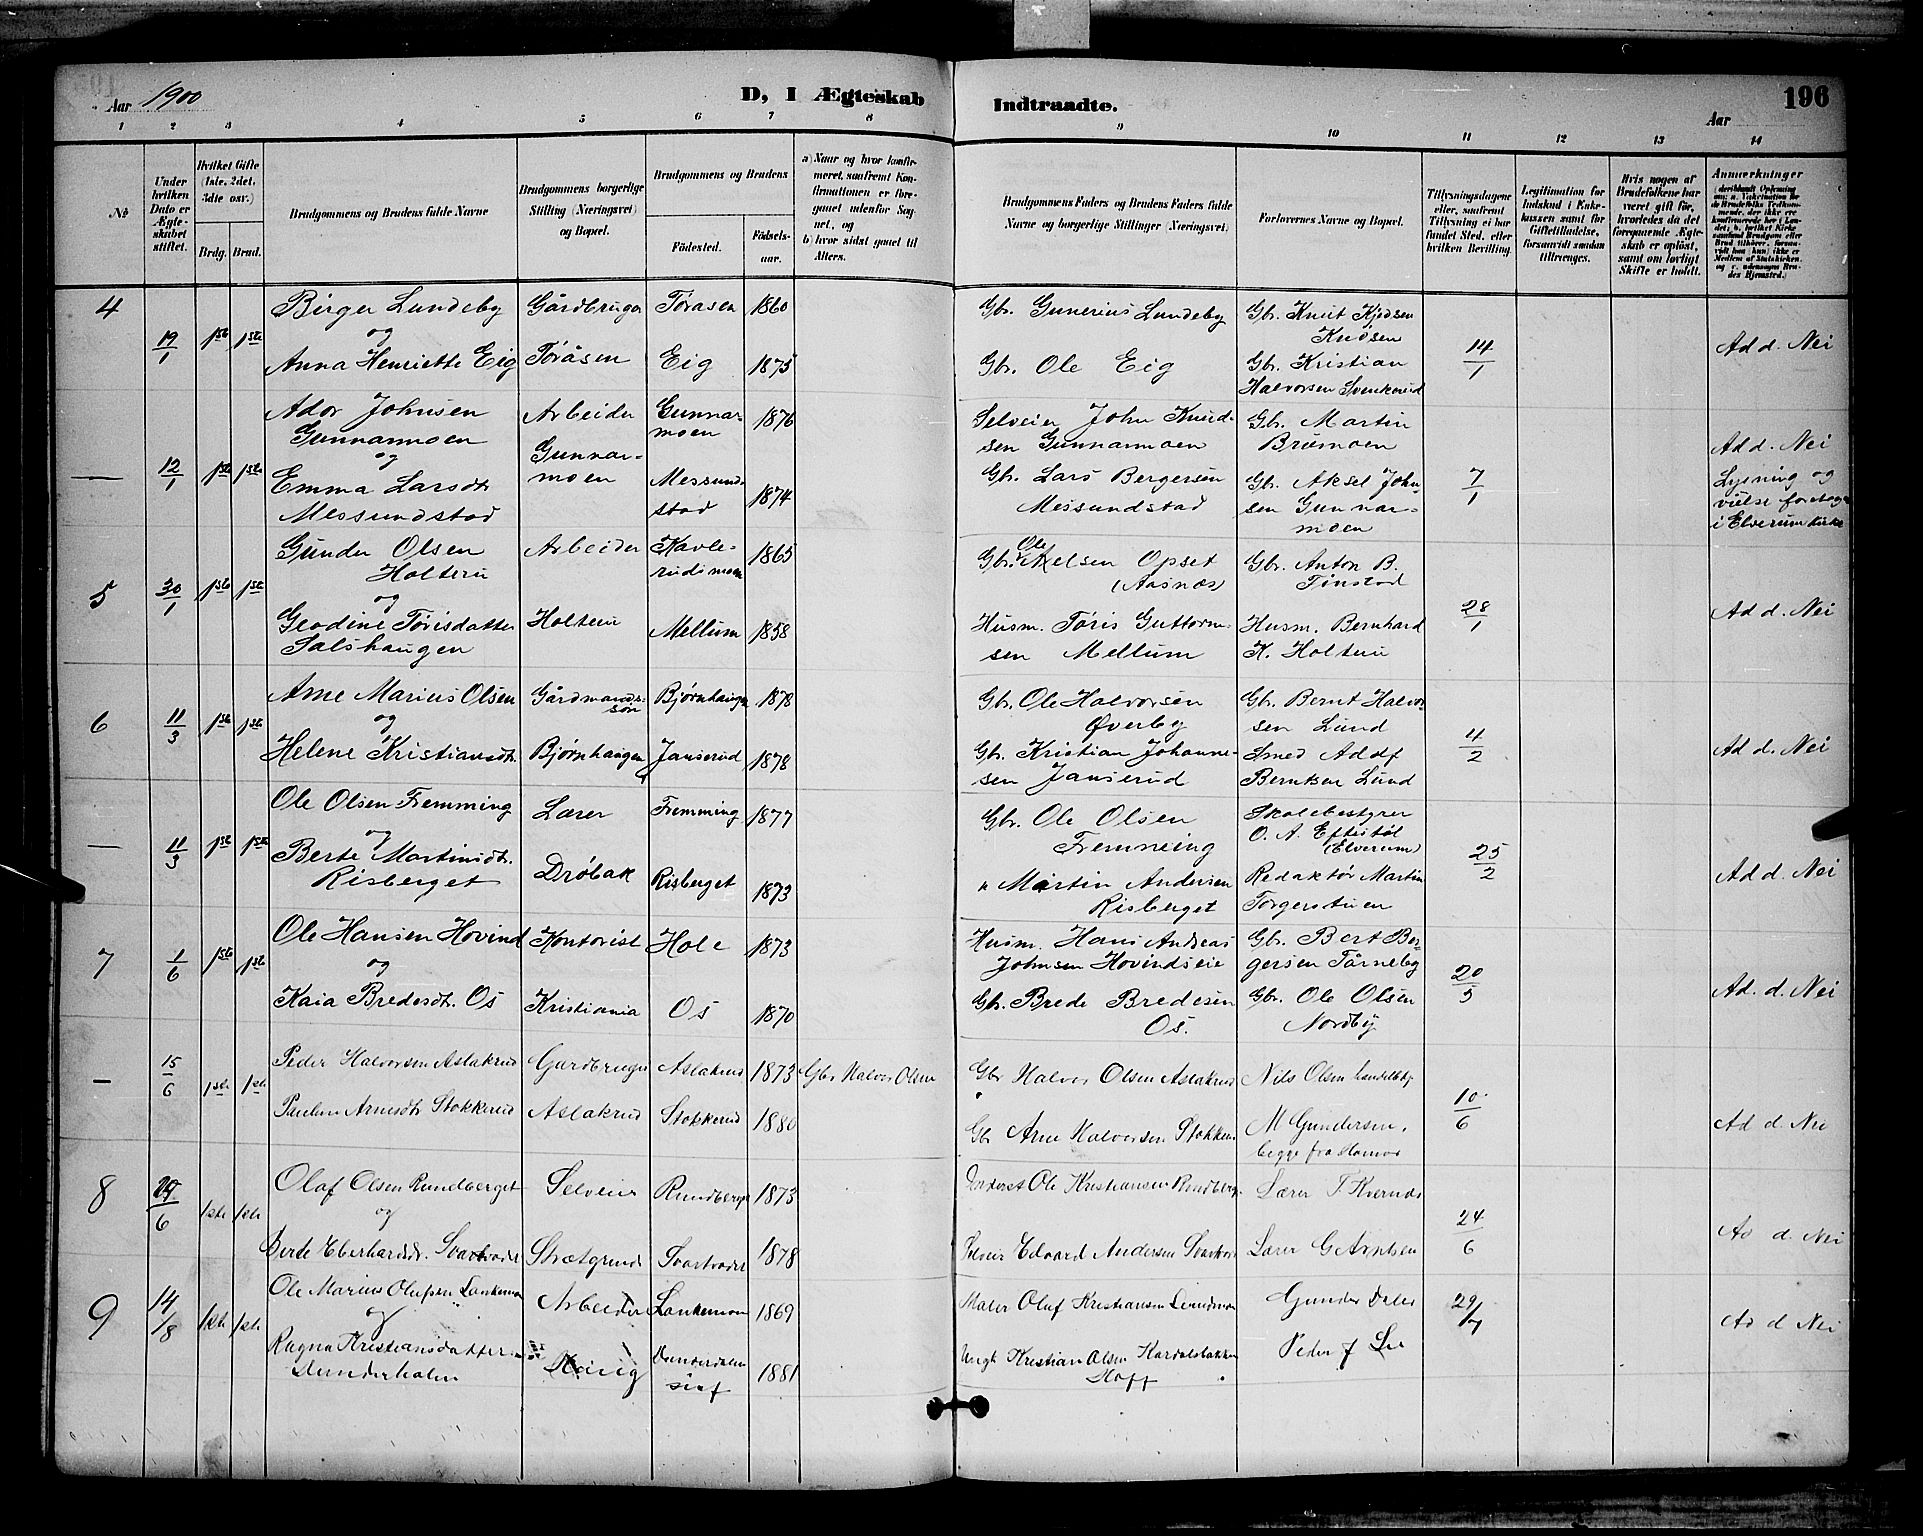 Aar 1900
D, I Ægteskab Indtraadte.
196
Aar
1 2 3 4 5 6 7 8 9 10 11 12 13 14
No
Under hvilken Dato er Ægteskabet stiftet.
Hvilket Gifte (1ste, 2det, 3dte osv.)
Brdg. Brud.
Brudgommens og Brudens fulde Navne
Brudgommens borgerlige Stilling (Næringsvei) og Bopæl.
Brudgommens og Brudens
Födested.
Födselsaar.
a) Naar og hvor konfirmeret, saafremt Konfirmationen er foregaaet udenfor Sognet, og
b) hvor sidst gaaet til Alters.
Brudgommens Faders og Brudens Faders fulde Navne og borgerlige Stillinger (Næringsvei).
Forlovernes Navne og Bopæl.
Tillysningsdagene eller, saafremt Tillysning ei har fundet Sted, efter hvilken Bevilling.
Legitimation for Indskud i Enkekassen samt for Giftetilladelse, forsaavidt saadan tiltrænges.
Hvis nogen af Brudefolkene har været gift för, hvorledes da det foregaaende Ægteskab er oplöst, samt om lovligt Skifte er holdt.
Anmærkninger
4 19/1 1ste 1ste
Birger Lundeby
og
Anna Henriette Eig
Gårdbruger
Töråsen
Töråsen 1860
Eig 1875
Gbr. Gunerius Lundeby
Gbr. Ole Eig
Gbr. Knut Kjedsen
Knösen
Gbr. Kristian
Halvorsen Svenkerud
14/1
Ad d. Nei
— 12/1 1ste 1ste
Ador Johnsen
Gunnarmoen
og
Emma Larsdtr
Messundstad
Arbeider
Gunnar-
moen
Gunnar-
moen 1876
Messund-
stad 1874
Selveier John Knud-
sen Gunnarmoen
Gbr. Lars Bergersen
Messundstad
Gbr. Martin
Bræmoen
Gbr. Aksel John-
sen Gunnar-
moen
7/1
Ad d. Nei
Lysning og
vielse foretage
i Elverum kirke
5 30/1 1ste 1ste
Gunder Olsen
Holteru
og
Geodine Törisdatter
Salshaugen
Arbeider
Holteru
Kavle-
rudsmoen 1865
Mellum 1858
Gbr. Ole Nelsen Opset
(Aasnæs)
Husm. Töris Guttorm-
sen Mellum
Gbr. Anton B.
Finstad
Husm. Bernhard
K. Holteru
28/1
Ad d. Nei
6 11/3 1ste 1ste
Arne Marius Olsen
og
Helene Kristiansdtr.
Gårdmands-
sön
Björnhaugen
Björnhaugen 1878
Janserud 1878
Gbr. Ole Halvorsen
Øverby
Gbr. Kristian Johanne-
sen Janserud
Gbr. Bernt Halvor-
sen Lund
Smed Adolf
Berntsen Lund
4/2
Ad d. Nei
— 11/3 1ste 1ste
Ole Olsen Fremming
og
Berte Martinsdtr.
Risberget
Lærer
Dröbak
Fremming 1877
Risberget 1873
Gbr. Ole Olsen
Fremming
" Martin Andersen
Risberget
Skolebestyrer
O. A. Eftestöl
(Elverum)
Redaktör Martin
Torgerstuen
25/2
Ad d. Nei
7 1/6 1ste 1ste
Ole Hansen Hovind
og
Kaia Bredesdtr. Os
Kontorist
Kristiania
Hole 1873
Os 1870
Husm. Hans Andreas
Johnsen Hovindseie
Gbr. Brede Bredesen
Os.
Gbr. Bert Ber-
gersen Tårneby
Gbr. Ole Olsen
Nordby
20/5
Ad. d. Nei
— 15/6 1ste 1ste
Peder Halvorsen Aslakrud
Pauline Arnesdtr Stokkerud
Gardbruger
Aslakrud
Aslakrud 1873
Stokkerud 1880
Gbr Halvor Olsen
Gbr Halvor Olsen Aslakrud
Gbr Arne Halvorsen Stokkerud
Nils Olsen
M Gundersen,
begge fra Hamar
10/6
Ad d. Nei
8 /6 1ste 1ste
Olaf Olsen Rundberget
og
Berte Eberhardsdtr. Svartvadet
Selveier
Strætgrund
Rundberget 1873
Svartvadet 1878
Ole Kristiansen Rundberg
Selveier Edvard Andersen Svartvad
Lærer T. Kvernd
Lærer G Arntsen
24/6
Ad d. Nei
9 14/8 1ste 1ste
Ole Marius Olufsen Lankemoen
og
Ragna Kristiansdatter
Dunderholen
Arbeider
Lankemoen 1869
1881
Maler Oluf Kristiansen
Kristian Olsen Kardalsbakken
Hoff
Gunder Dalei
Peder J Lie
29/7
Ad d Nei